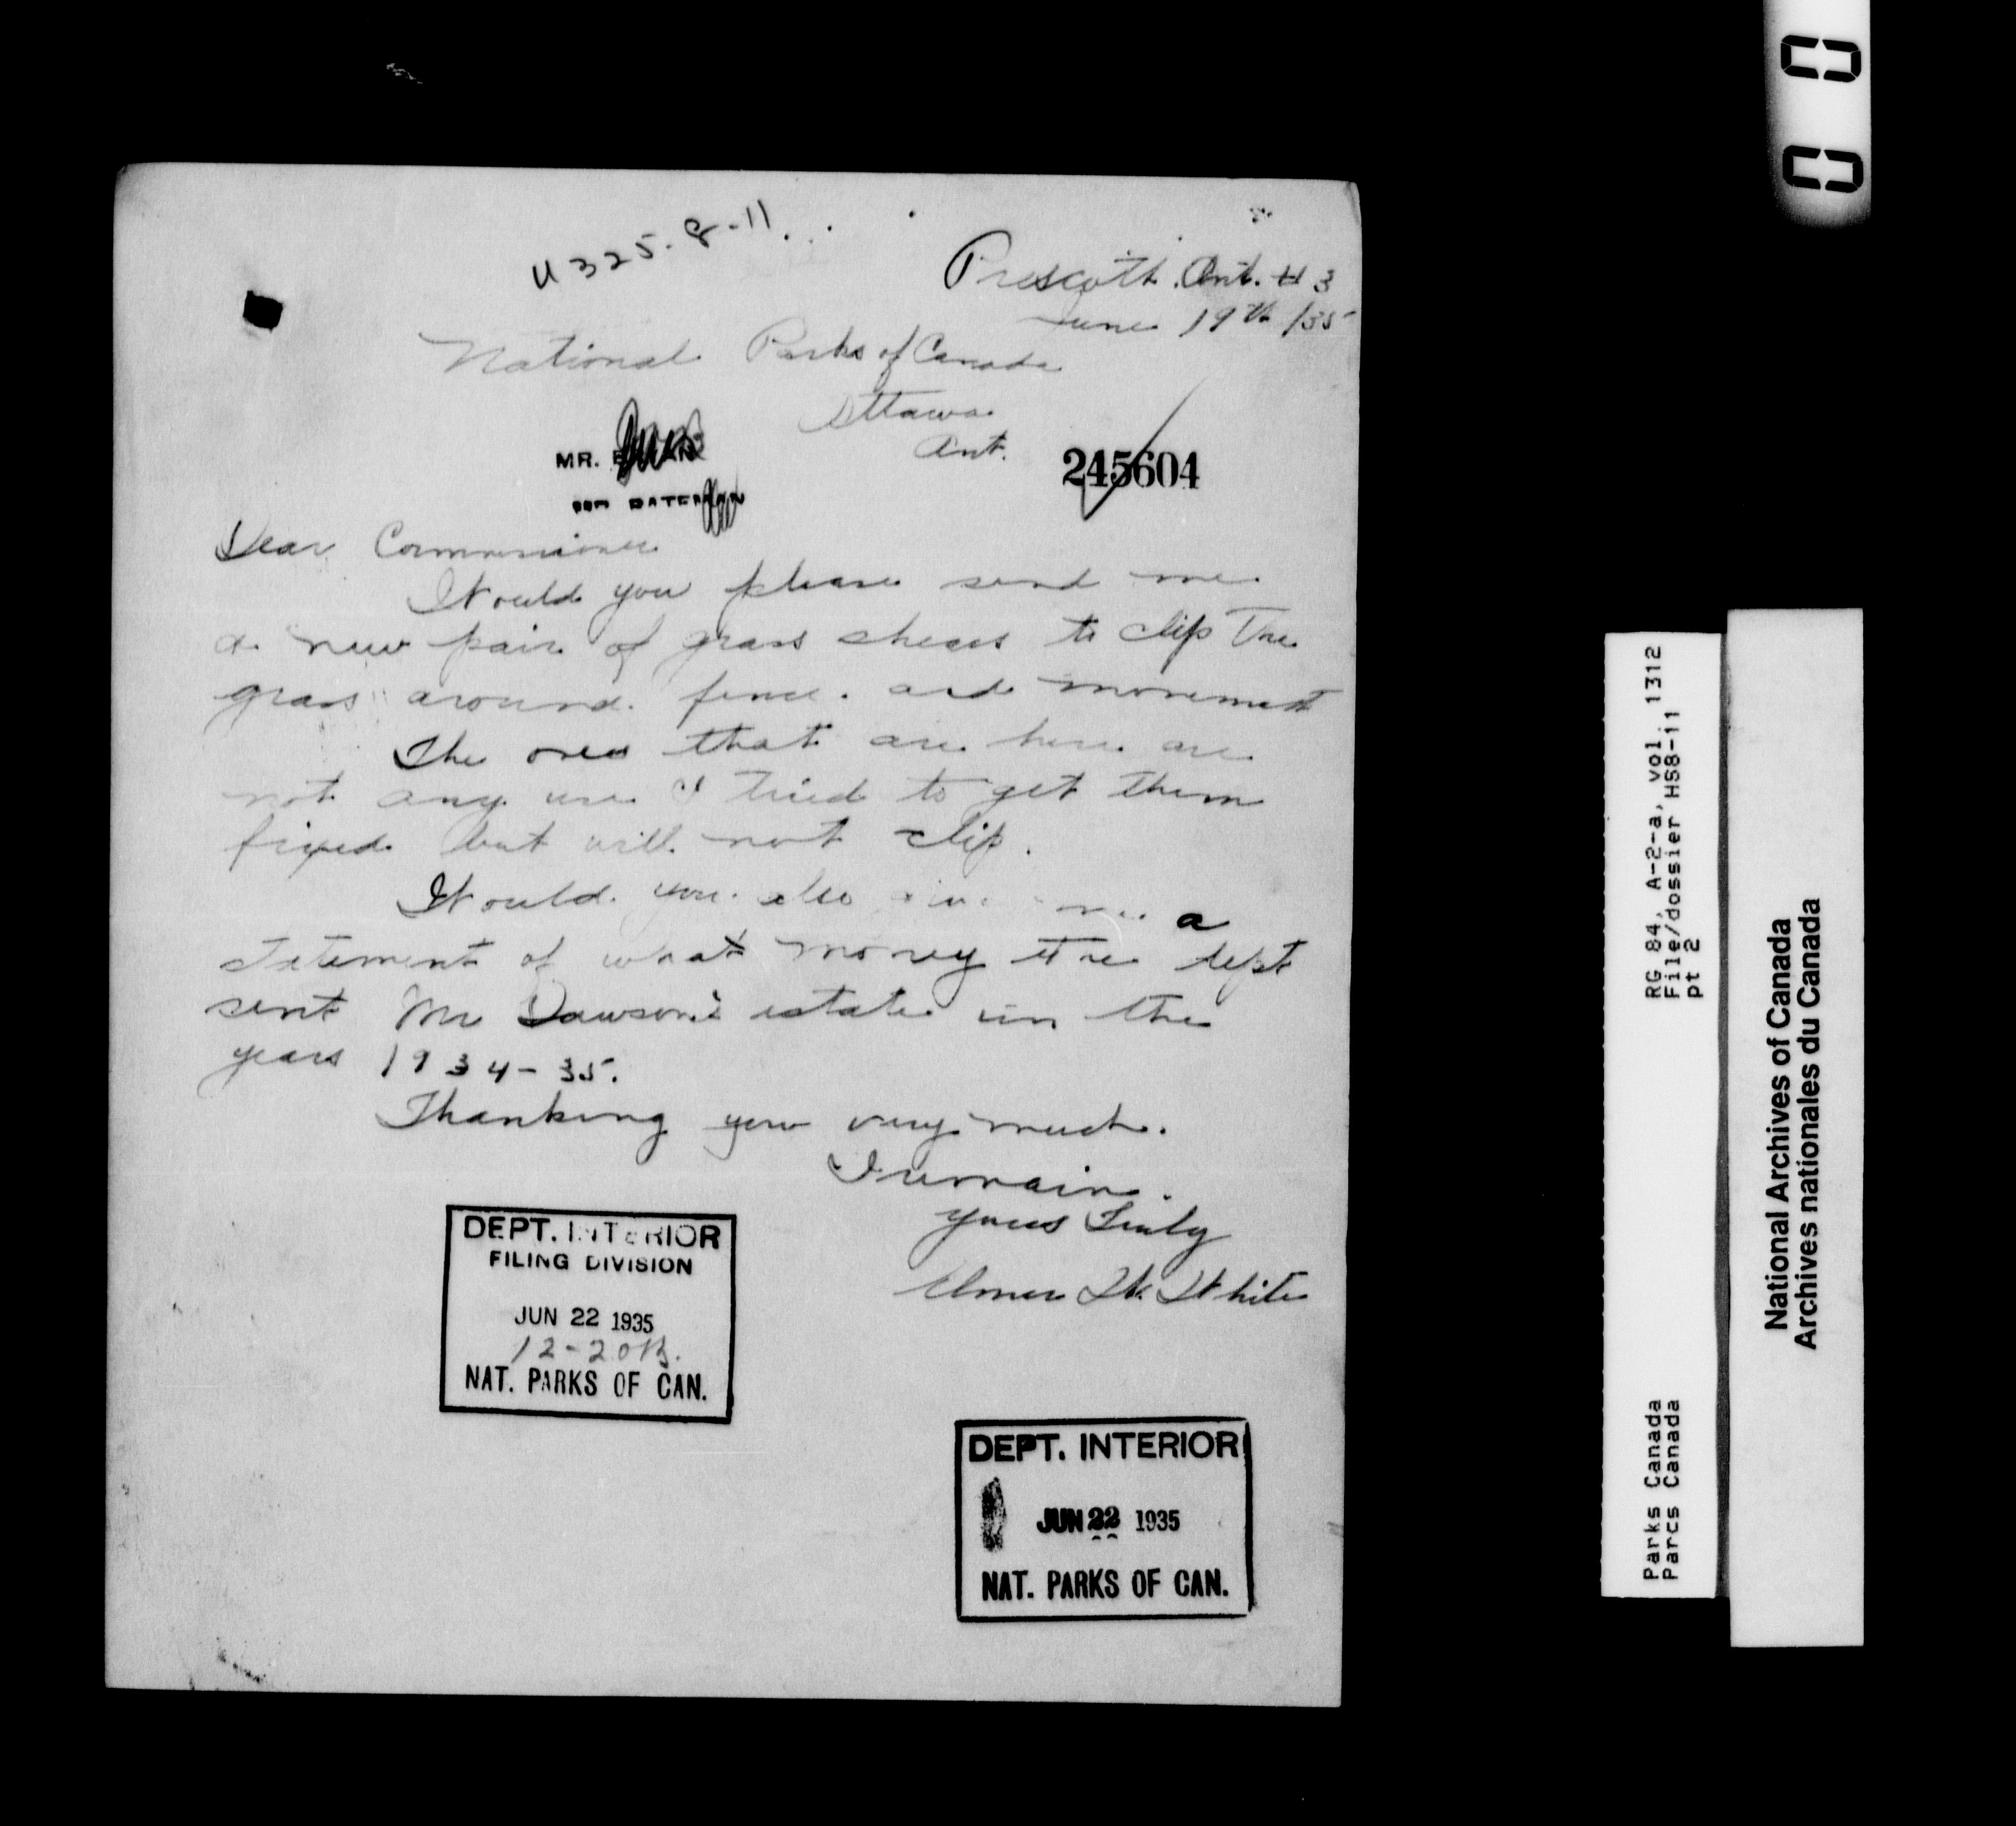 U325-8-11
Prescott. Ont. # 3
June 19th /35
National Parks of Canada
Ottawa
Ont.
MR.
245604
Dear Commissioner
Would you please send me
a new pair of grass shears to clip The
grass around fence. and monument
The ones that are here are
not any use I tried to get them
fixed but will not clip.
Would you also give me a
statement of what money the dept
sent Mr Dawson's estate in the
years 1934-35.
Thanking you very much.
I remain.
Yours Truly
Elmer W. White
DEPT. INTERIOR
FILING DIVISION
JUN 22 1935
12-20
NAT. PARKS OF CAN.
DEPT. INTERIOR
JUN 22 1935
NAT. PARKS OF CAN.
RG 84, A-2-a, vol. 1312
File/dossier HS8-11
pt 2
Parks Canada
Parcs Canada
National Archives of Canada
Archives nationales du Canada